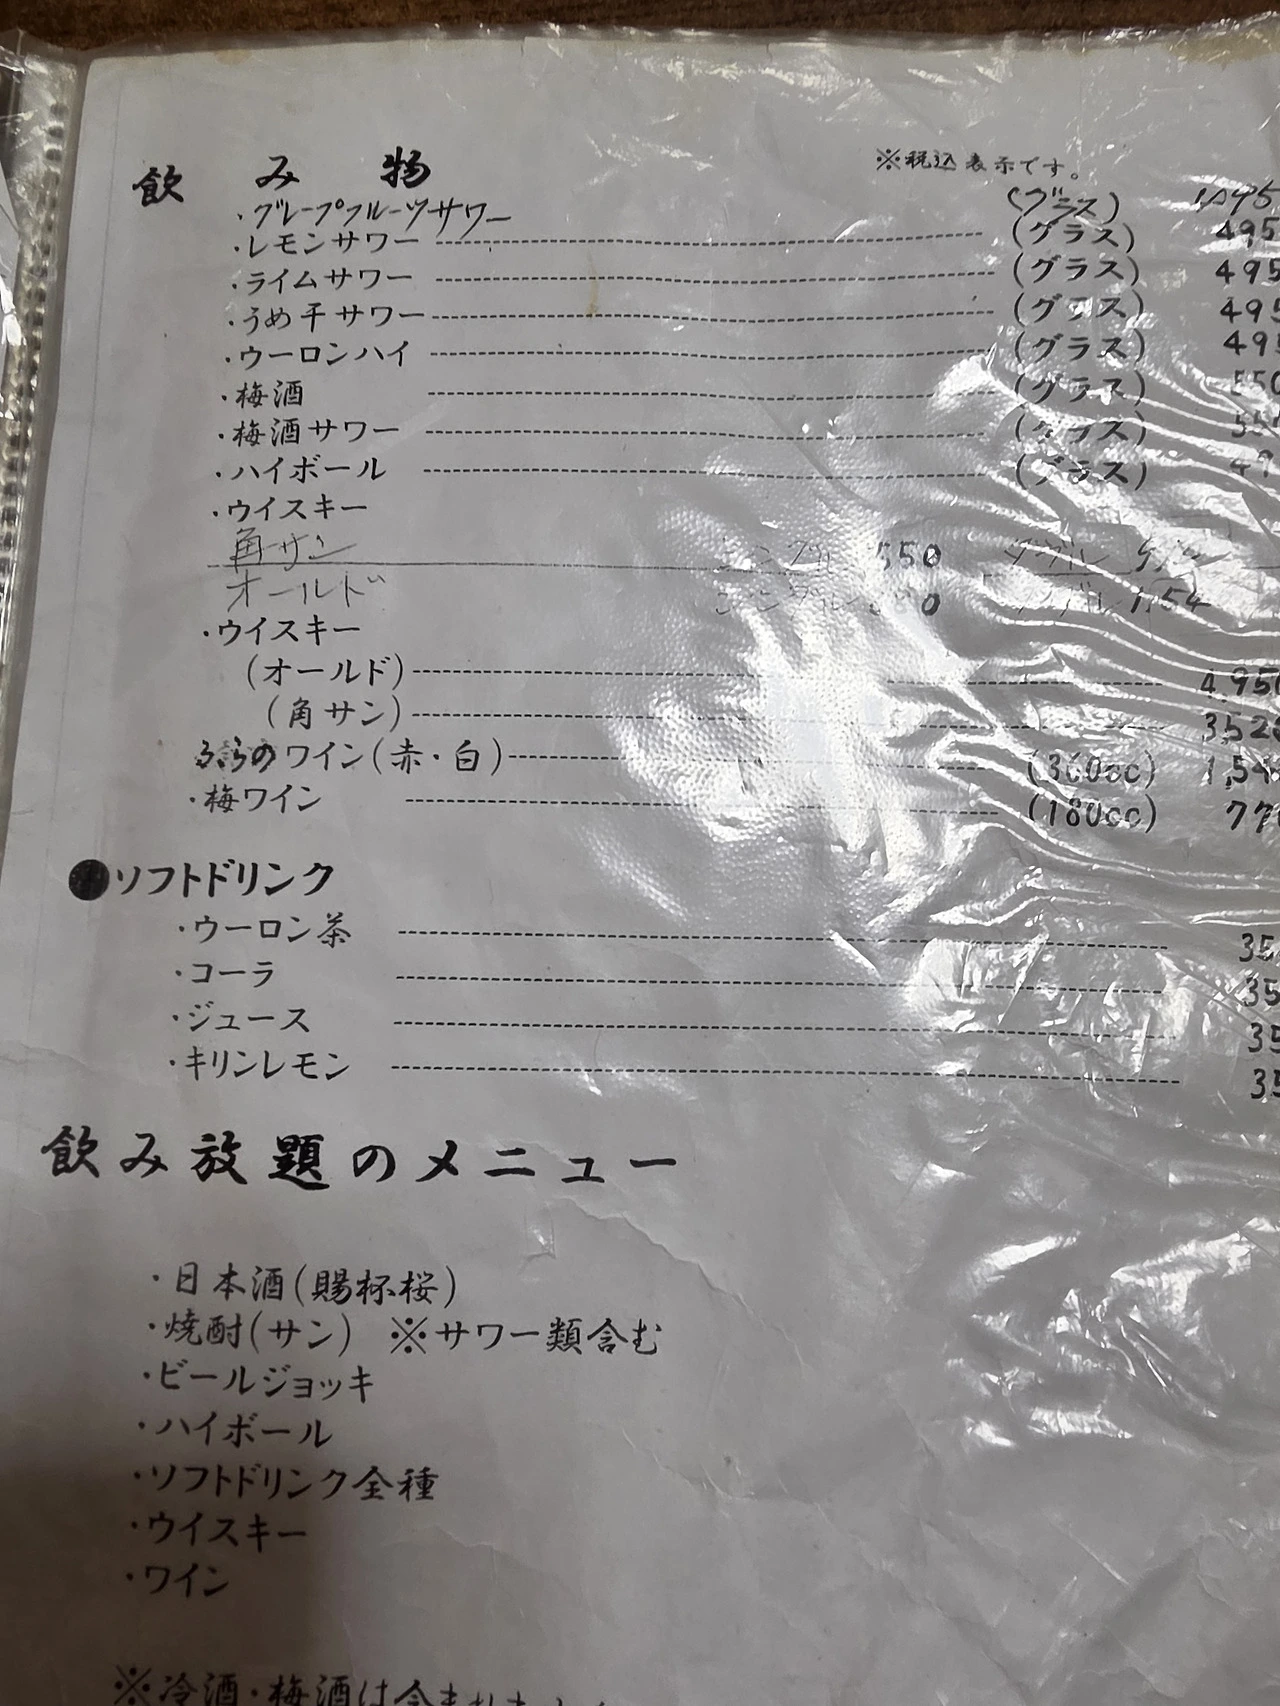 飲み物
※税込表示です。
・グレープフルーツサワー (グラス)
・レモンサワー (グラス) 495
・ライムサワー (グラス) 495
・うめ干サワー (グラス) 495
・ウーロンハイ (グラス) 495
・梅酒 (グラス) 550
・梅酒サワー (グラス)
・ハイボール (グラス)
・ウイスキー
角サン シングル 550 ダブル
オールド シングル ダブル
・ウイスキー
(オールド) 4,950
(角サン) 352
ふらのワイン(赤・白) (360cc) 1,54
・梅ワイン (180cc) 77
●ソフトドリンク
・ウーロン茶 35
・コーラ 35
・ジュース 35
・キリンレモン 35
飲み放題のメニュー
・日本酒(賜杯桜)
・焼酎(サン) ※サワー類含む
・ビールジョッキ
・ハイボール
・ソフトドリンク全種
・ウイスキー
・ワイン
※冷酒・梅酒は含まれません